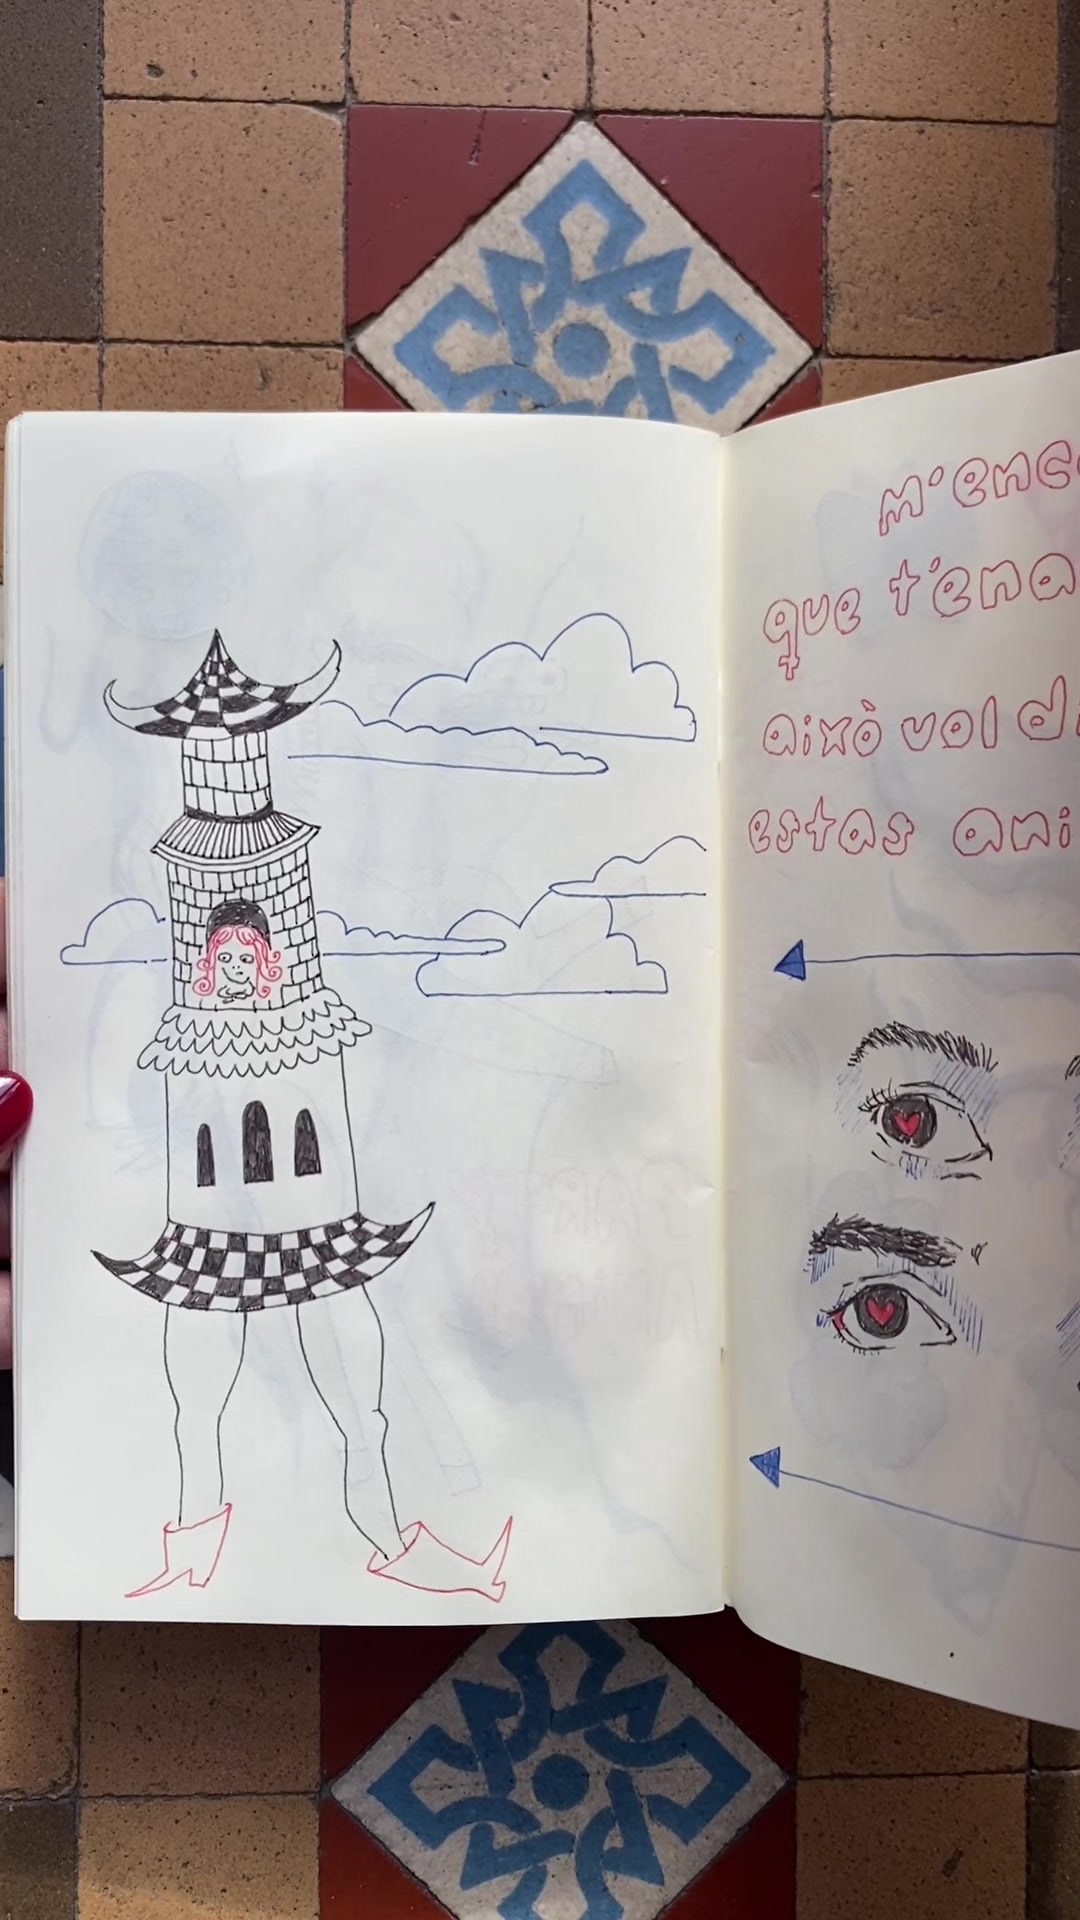 m'enc
que t'ena
això vol d
estas ani